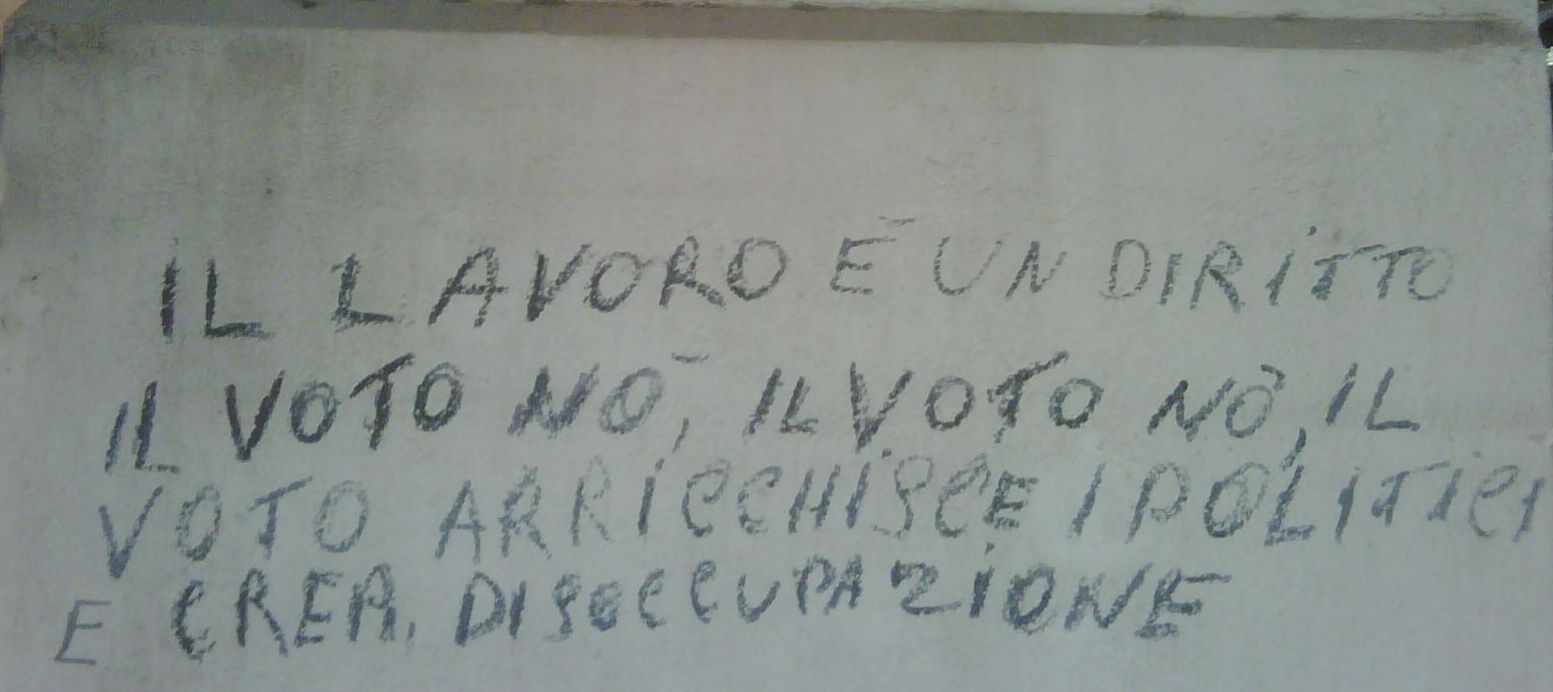 IL LAVORO È UN DIRITTO
IL VOTO NÒ, IL VOTO NÒ, IL
VOTO ARRICCHISCE I POLITICI
E CREA. DISOCCUPAZIONE